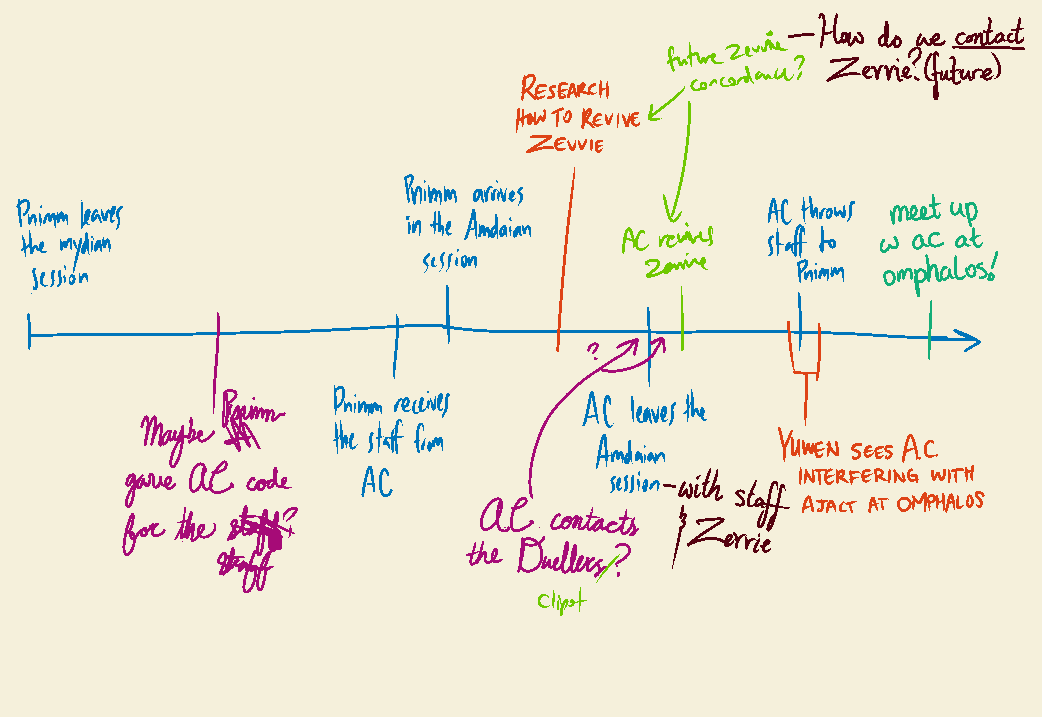 future Zevvie
concordance?
— How do we contact
Zevvie? (future)
RESEARCH
HOW TO REVIVE
ZEVVIE
Pnimm leaves
the mydian
session
Pnimm arrives
in the Amdaian
session
AC revives
Zevvie
AC throws
staff to
Pnimm
meet up
w ac at
omphalos!
Maybe Pnimm
gave AC code
for the
staff?
Pnimm receives
the staff from
AC
?
AC contacts
the Duellers?
AC leaves the
Amdaian
session
— with staff
& Zevvie
YUWEN SEES A.C.
INTERFERING WITH
AJACT AT OMPHALOS